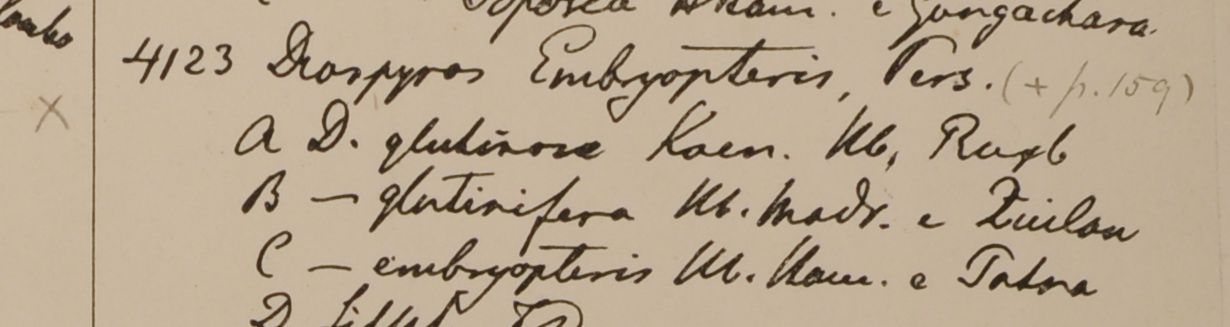 Ham. e Gongachara
4123 Diospyros Embryopteris, Pers. (+ p. 159)
A D. glutinosa Koen. Hb, Roxb
B — glutinifera Hb. Madr. e Zeilan
C — embryopteris Hb. Ham. e Patna
D